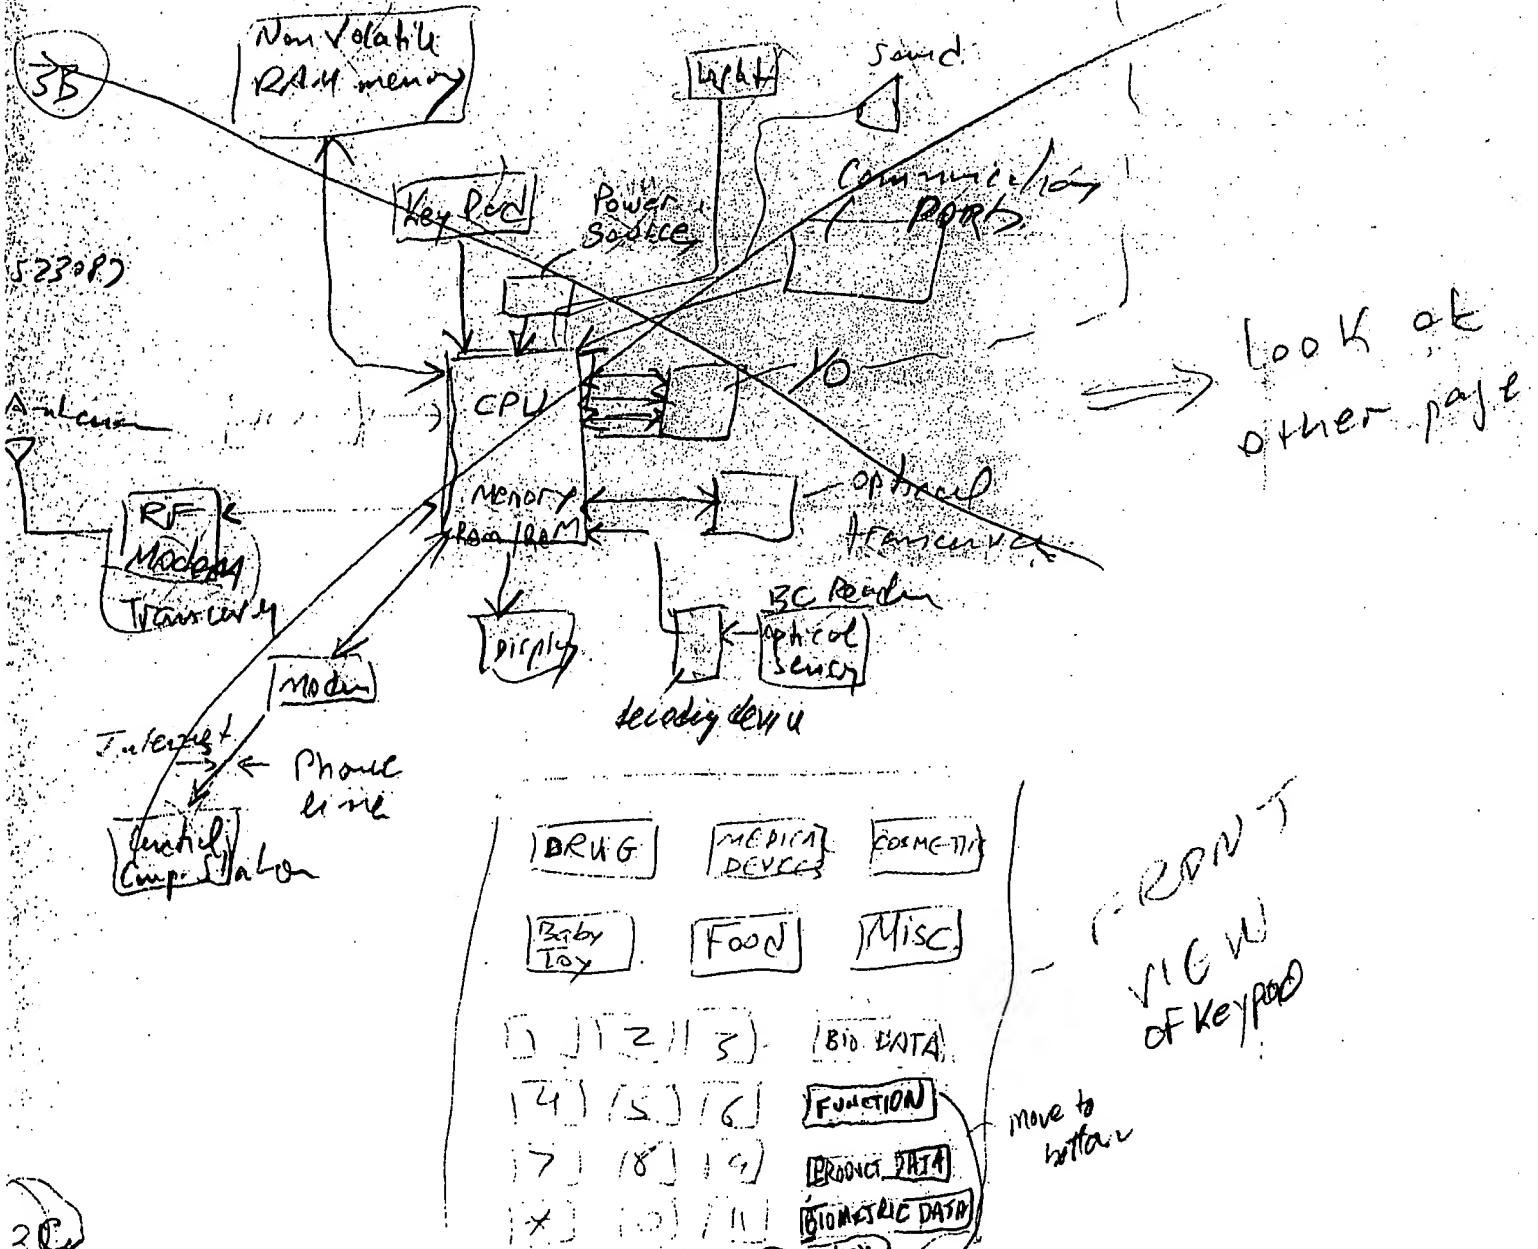 3B
Non Volatile
RAM memory
Light
Sound
Key Pad
Power
Source
Communication
PORTS
523087
CPU
I/O
look at
other page
Antenna
Memory
ROM/RAM
optical
transceiver
RF
Modem
Transceiver
BC Reader
Display
optical
sensor
Modem
decoding device
Internet
Phone
line
Central
Comp. Station
DRUG
MEDICAL
DEVICES
COSMETIC
FRONT
VIEW
OF KEYPAD
Baby
Toy
FOOD
MISC
1 2 3 BIO DATA
4 5 6 FUNCTION
move to
bottom
7 8 9 PRODUCT DATA
* 0 11 BIOMETRIC DATA